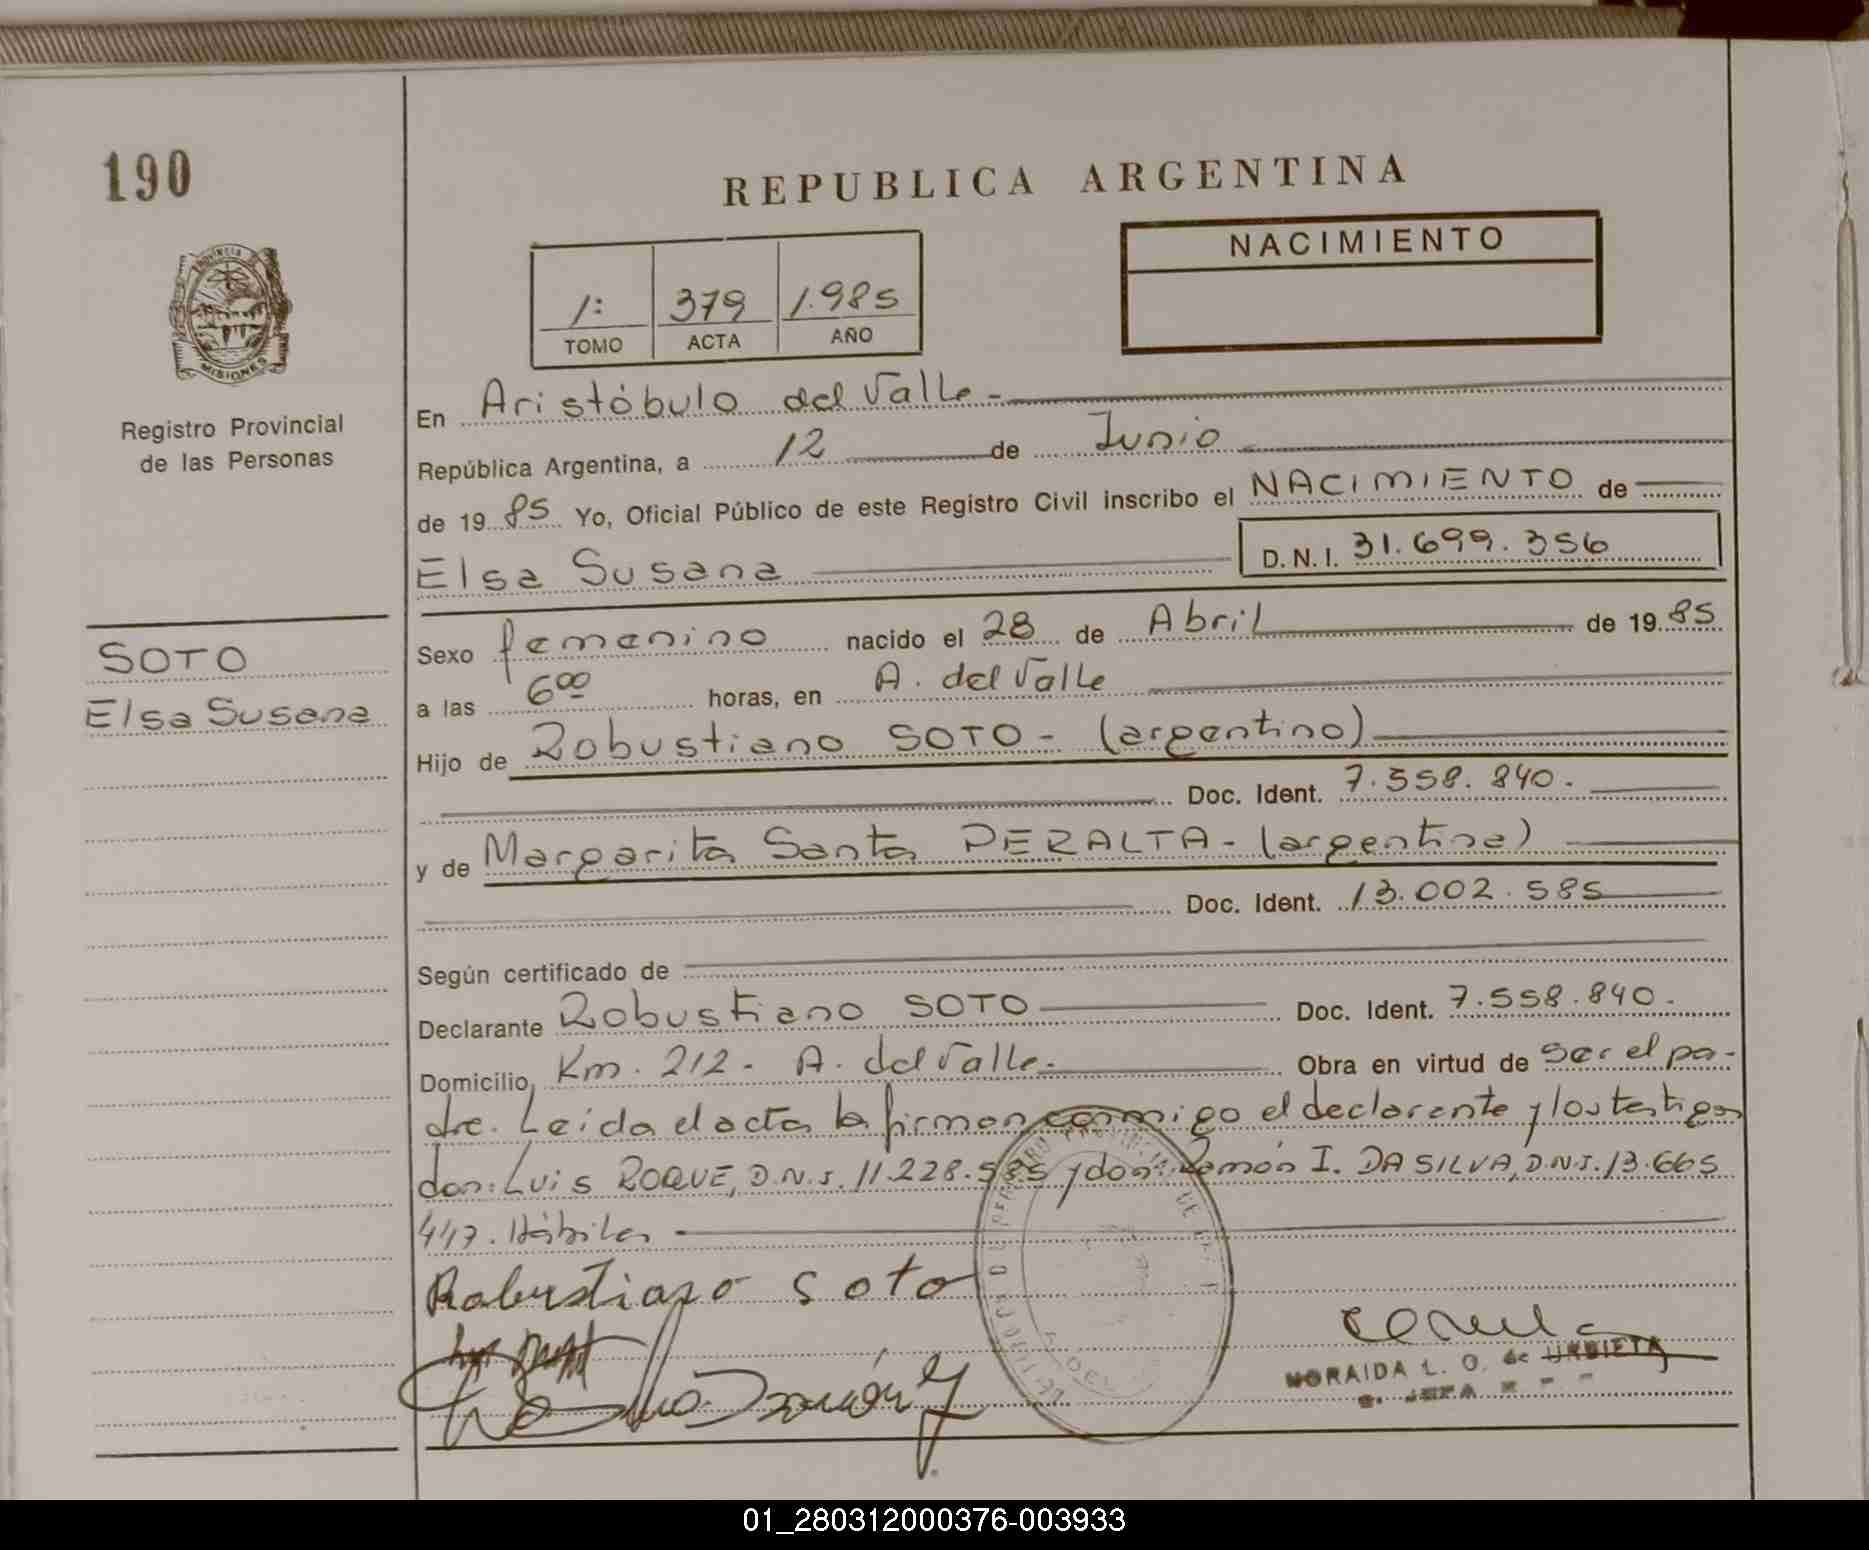 190
REPUBLICA ARGENTINA
NACIMIENTO
1: 379 1.985
TOMO ACTA AÑO
PROVINCIA DE
MISIONES
Registro Provincial
de las Personas
En Aristóbulo del Valle -
República Argentina, a 12 de Junio
de 1985 Yo, Oficial Público de este Registro Civil inscribo el NACIMIENTO de
Elsa Susana D.N.I. 31.699.356
SOTO
Elsa Susana
Sexo femenino nacido el 28 de Abril de 1985
a las 6 00 horas, en A. del Valle
Hijo de Robustiano SOTO - (argentino)
Doc. Ident. 7.558.840.
y de Margarita Santa PERALTA - (argentina)
Doc. Ident. 13.002.585
Según certificado de
Declarante Robustiano SOTO Doc. Ident. 7.558.840.
Domicilio Km. 212 - A. del Valle. Obra en virtud de ser el pa-
dre. Leida el acta la firman conmigo el declarante y los testigos
don: Luis ROQUE, D.N.I. 11.228.585 y don: Ramón I. DA SILVA, D.N.I. 13.665
447. Hábiles
Robustiano Soto
NORAIDA L. O. de URBIETA
01_280312000376-003933